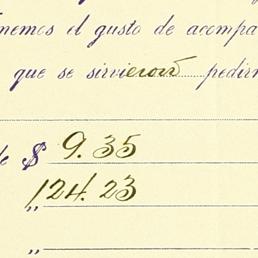 nemos el gusto de acompa
que se sirvieron pedirn
de $ 9.35
" 124.23
"